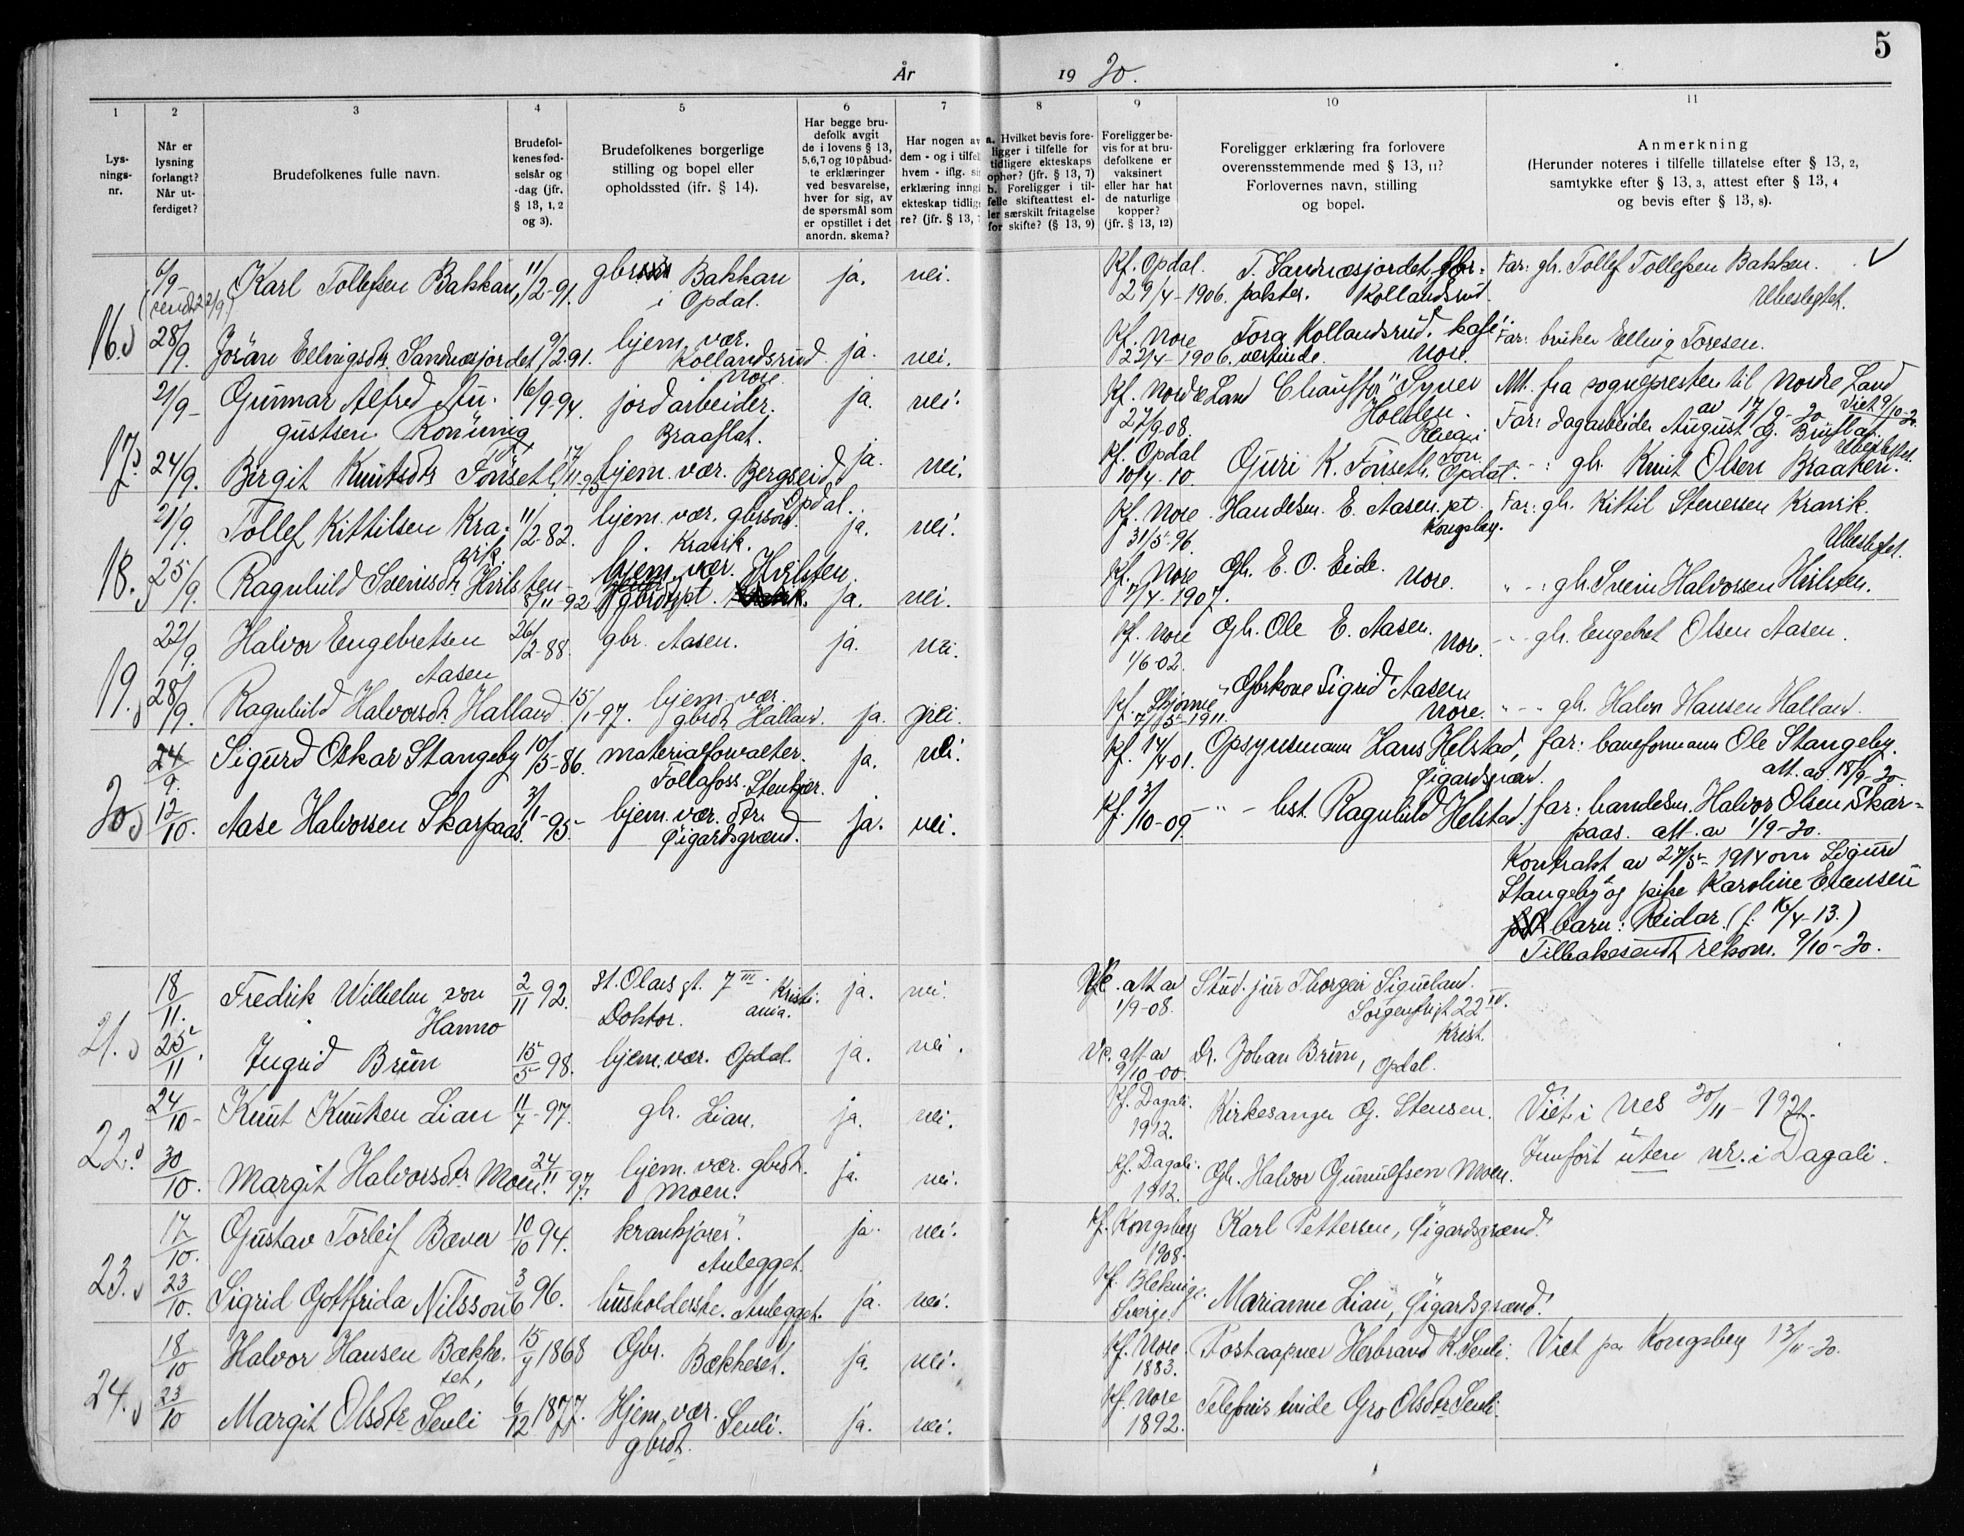 5
År 1920.
1 2 3 4 5 6 7 8 9 10 11
Lysningsnr.
Når er lysning forlangt? Når utferdiget?
Brudefolkenes fulle navn.
Brudefolkenes fødselsår og -dag (jfr. § 13, 1, 2 og 3).
Brudefolkenes borgerlige stilling og bopel eller opholdssted (jfr. § 14).
Har begge brudefolk avgit de i lovens § 13, 5, 6, 7 og 10 påbudte erklæringer ved besvarelse, hver for sig, av de spørsmål som er opstillet i det anordn. skema?
Har nogen av dem - og i tilfelle hvem - iflg. erklæring inngått ekteskap tidligere? (jfr. § 13,
a. Hvilket bevis foreligger i tilfelle for tidligere ekteskaps ophør? (jfr. § 13, 7) b. Foreligger i tilfelle skifteattest eller særskilt fritagelse for skifte? (§ 13, 9)
Foreligger bevis for at brudefolkene er vaksinert eller har hat de naturlige kopper? (jfr. § 13, 12)
Foreligger erklæring fra forlovere overensstemmende med § 13, 11? Forlovernes navn, stilling og bopel.
Anmerkning (Herunder noteres i tilfelle tillatelse efter § 13, 2, samtykke efter § 13, 3, attest efter § 13, 4 og bevis efter § 13, 8).
16. 6/9 Karl Tollefsen Bakkan, 11/2-91. gbr. Bakkan i Opdal. ja. nei. Kf. Opdal. 29/4-1906. T. Sandnæsjordet, Kollandsrud. Far: gbr. Tollef Tollefsen Bakken. Ubeslegtet.
28/9. Jøran Ellingsdtr. Sandnæsjordet 9/2.91. hjem. vær. Kollandsrud Nore. ja. nei. Kf. Nore 22/4-1906. Tora Kollandsrud, kafévertinde. Nore. Far: bruker Elling Toresen.
17. 21/9- Gunnar Alfred Augustsen Rønning 16/9-94. jordarbeider. Braaflat. ja. nei. Kf. Nordre Land 27/9.08. Chauffør Syver Holden. Att. fra sognepresten til Nordre Land av 17/9-20 Viet 9/10-20. Far: dagarbeider August G. Ubeslegtet.
24/9. Birgit Knutsdtr. Fønset 17/11-95 hjem. vær. Bergseid, Opdal. ja. nei. Kf. Opdal 10/4.10. Guri K. Fønset. Opdal. - : gbr. Knut Olsen Braaten.
18. 21/9. Tollef Kittilsen Kravik, 11/2-82. hjem. vær. gbrsøn. Kravik. ja. nei. Kf. Nore 31/5-96. Handelsm. E. Aasen, pt. Kongsberg. Far: gbr. Kittil Stenersen Kravik. Ubeslegtet.
25/9. Ragnhild Sveinsdtr. Hvilsten 8/11-92. hjem. vær. Hvilsten. ja. nei. Kf. Nore 7/4-1907. Gbr. E. O. Eide. Nore. " - : gbr. Svein Halvorsen Hvilsten.
19. 22/9. Halvor Engebretsen Aasen 26/2-88. gbr. Aasen. ja. nei. Kf. Nore 1/6-02. Gbr. Ole E. Aasen. Nore. - " - gbr. Engebret Olsen Aasen.
28/9. Ragnhild Halvorsdtr. Halland 15/1-97. hjem. vær. gbrdt. Halland. ja. nei. Kf. 7/5-1911. Gbrkone Sigrid Aasen Nore. " - - gbr. Halvor Hansen Halland.
20. 24/9. Sigurd Oskar Stangeby 10/5-86. materialforvalter. Follafoss. Stenkjær. ja. nei. Kf. 14/4-01. Opsynsmann Hans Helstad, Øigardsgrænd. far: baneformann Ole Stangeby. att. av. 18/9-20
12/10. Aase Halvorsen Skarpaas. 3/1-95. hjem. vær. dtr. Øigardsgrænd. ja. nei. Kf. 3/10-09. - " - hst. Ragnhild Helstad. far: handelsm. Halvor Olsen Skarpaas. att. av 1/9-20.
Kontrakt av 27/5-1914 om Sigurd
Stangeby og pike Karoline Evensen
barn: Reidar (f. 16/4-13.)
Tilbakesendt rekom. 9/10-20.
21. 18/11. Fredrik Wilhelm von Hanno 2/11 92. St. Olavs gt. 7 III Kristiania. Doktor. ja. nei. Vc. att av 1/9-08. Stud. jur Thorgeir Siqueland. Sorgenfrigt 22 IV. Krist.
25/11. Ingrid Brun 15/5 98. hjem. vær. Opdal. ja. nei. Vc. att av 9/10-00. Dr. Johan Brun, Opdal.
22. 24/10- Knut Knutsen Lian 11/7-97. gbr. Lian. ja. nei. Kf. Dagali. 1912. Kirkesanger G. Stensen. Viet i Nes 20/11-1920.
30/10. Margit Halvorsdtr. Moen. 24/11-97. hjem. vær. gbrdtr. Moen. ja. nei. Kf. Dagali. 1912. Gbr. Halvor Gunnulfsen Moen. Innført uten nr. i Dagali.
23. 17/10. Gustav Torleif Bæver 10/10 94. krankjører. Anlegget. ja. nei. Kf. Kongsberg 1908. Karl Pettersen, Øigardsgrænd.
23/10. Sigrid Gottfrida Nilsson 3/6 96. husholderske. Anlegget. ja. nei. Kf. Blekinge. Sverige Marianne Lian, Øigardsgrænd.
24. 18/10 Halvor Hansen Bækkeset, 15/4 1868 Gbr. Bækkeset. ja. nei. Kf. Nore. 1883. Postaapner Herbrand K. Senli. Viet paa Kongsberg 13/11-20.
23/10 Margit Olsdtr Senli 6/12 1877. Hjem. vær. gbrdt. Senli. ja. nei. Kf. Nore 1892. Telefonistinde Gro Olsdtr Senli.